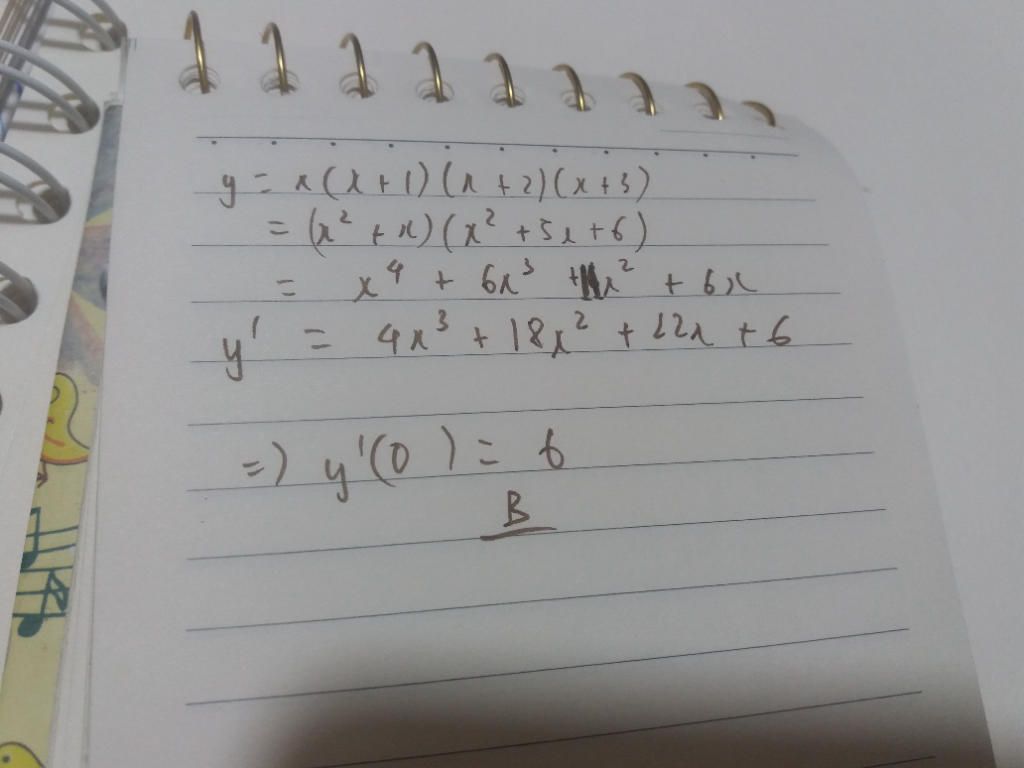 y = x(x+1)(x+2)(x+3)
= (x² + x)(x² + 5x + 6)
= x⁴ + 6x³ + 11x² + 6x
y' = 4x³ + 18x² + 22x + 6
=) y'(0) = 6
B